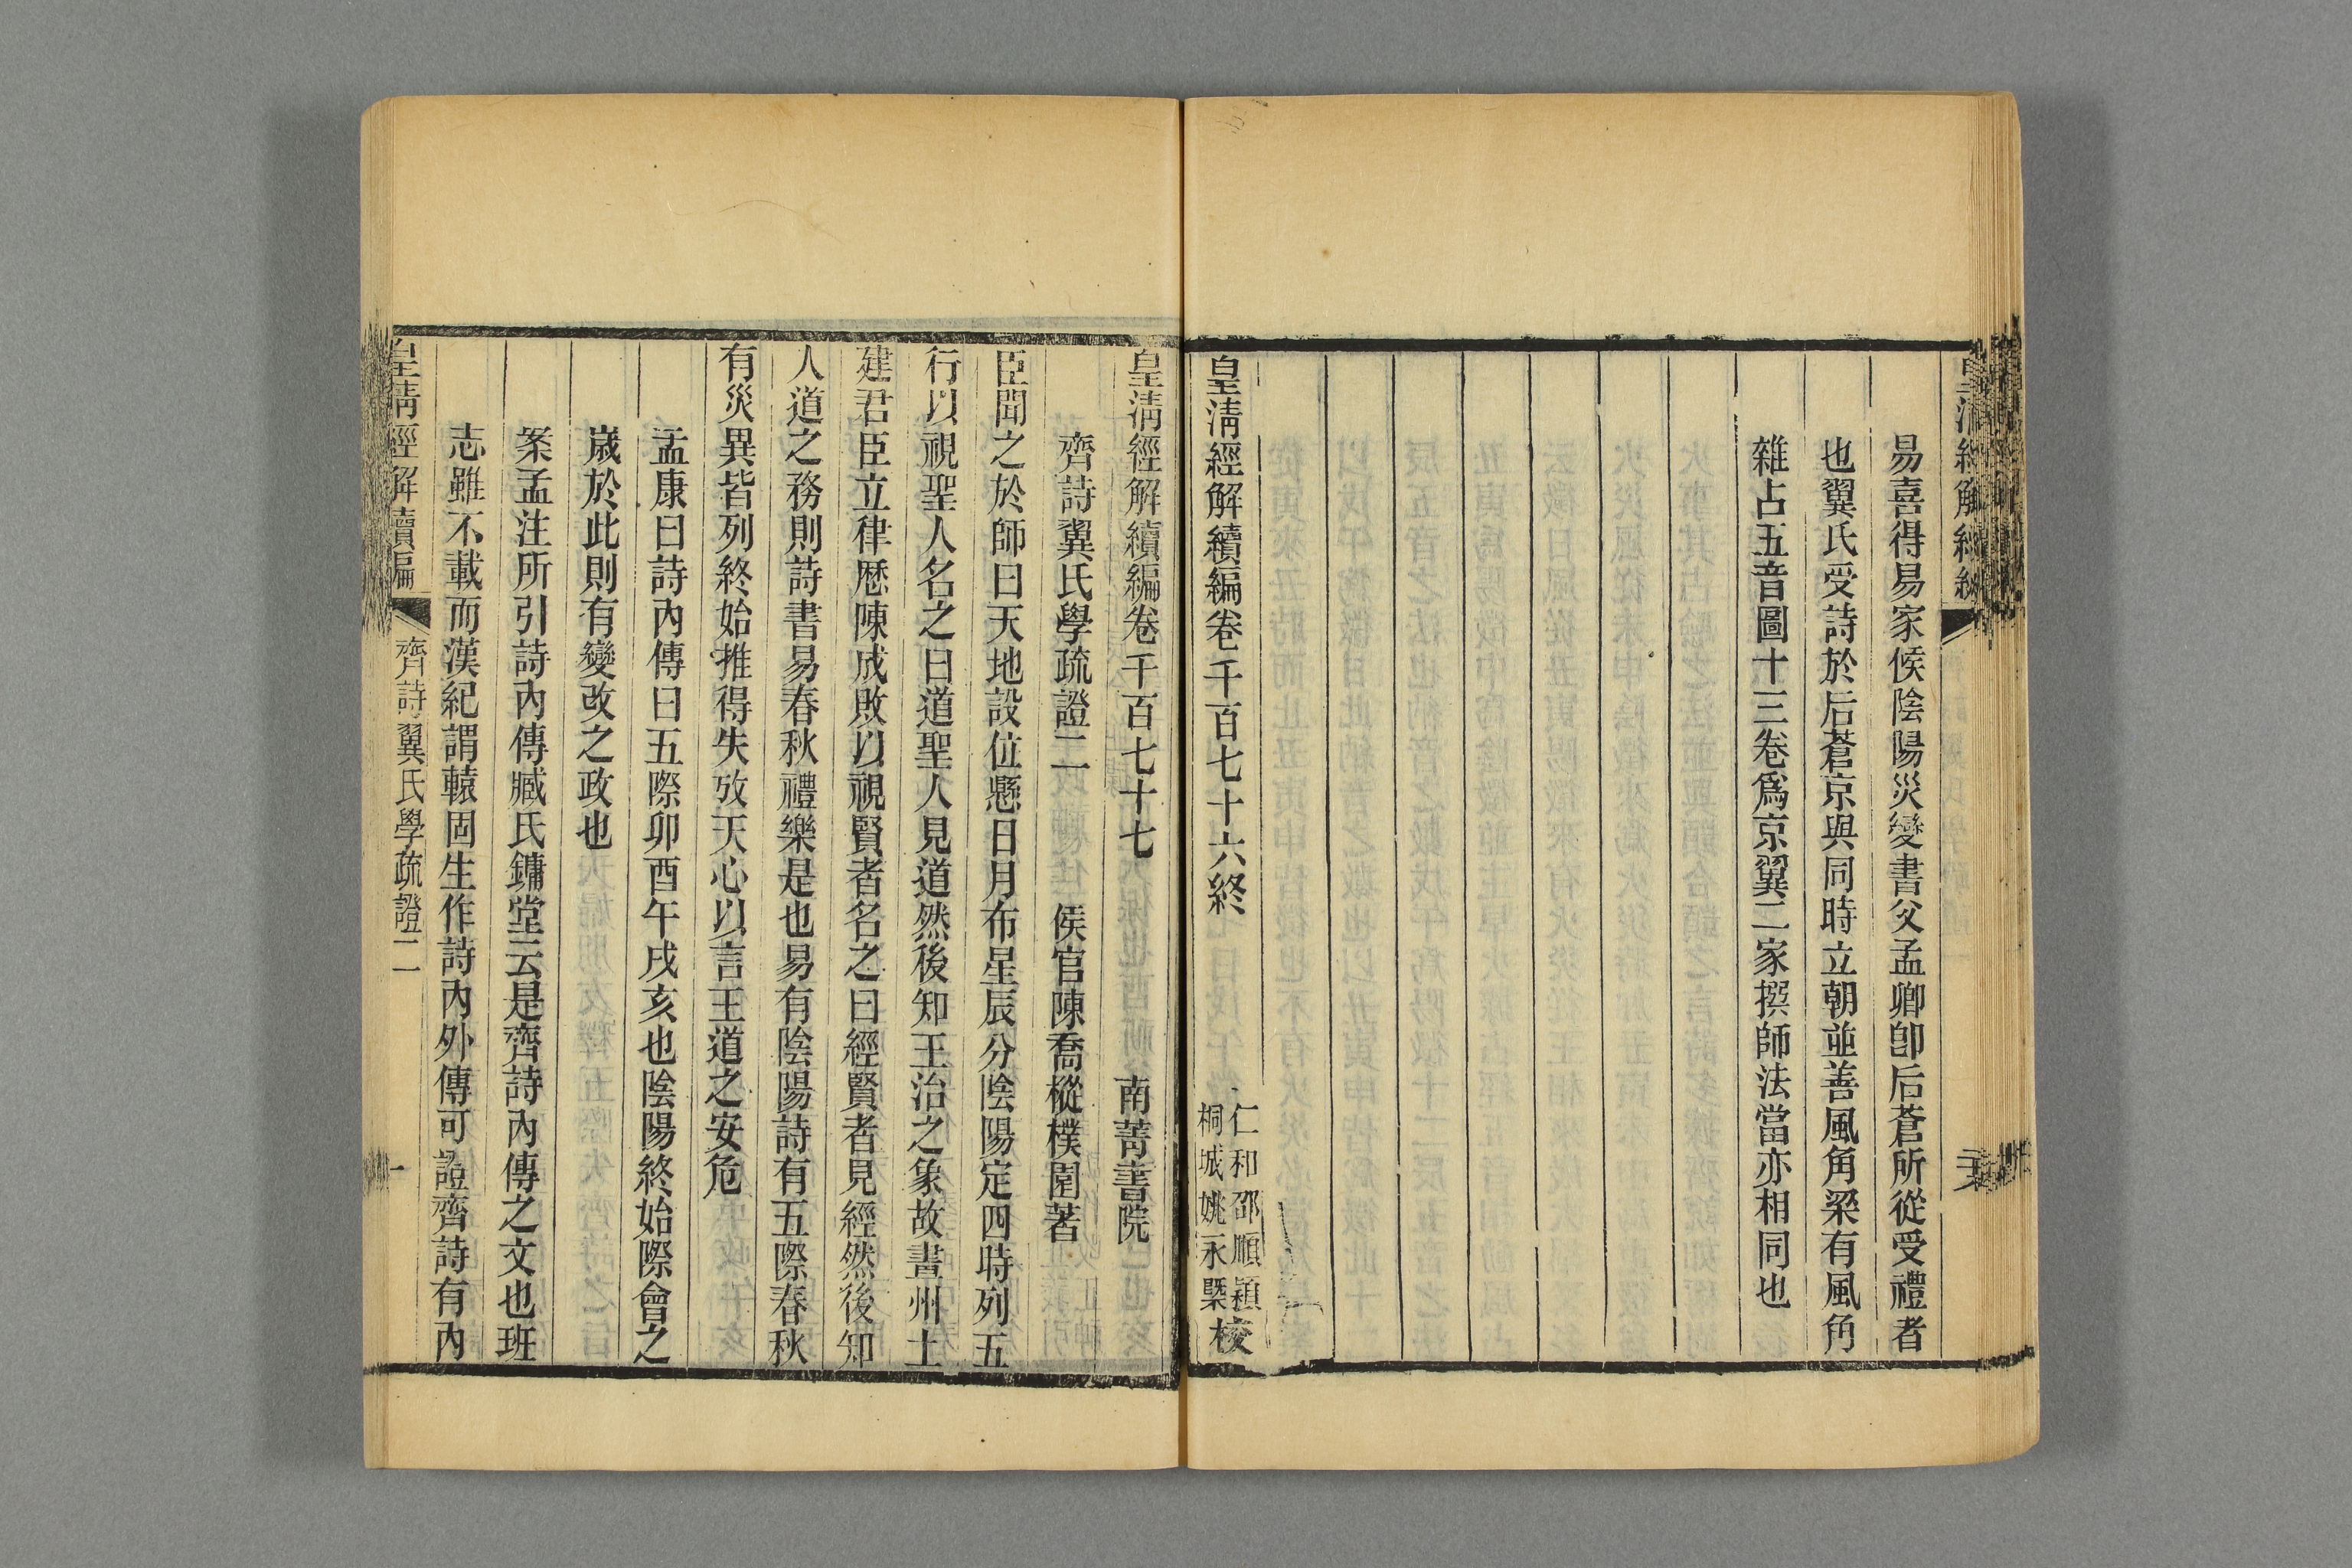 易喜得易家候陰陽災變書父孟卿卽后蒼所從受禮者
也翼氏受詩於后蒼京與同時立朝並善風角梁有風角
雜占五音圖十三卷爲京翼二家撰師法當亦相同也
皇淸經解續編卷千百七十六終
仁和邵順潁
桐城姚永㮣
校
皇淸經解續編卷千百七十七
南菁書院
齊詩翼氏學疏證二
侯官陳喬樅樸園著
臣聞之於師曰天地設位懸日月布星辰分陰陽定四時列五
行以視聖人名之曰道聖人見道然後知王治之象故畫州土
建君臣立律歴陳成敗以視賢者名之曰經賢者見經然後知
人道之務則詩書易春秋禮樂是也易有陰陽詩有五際春秋
有災異皆列終始推得失攷天心以言王道之安危
孟康曰詩內傳曰五際卯酉午戌亥也陰陽終始際會之
歲於此則有變改之政也
案孟注所引詩內傳臧氏鏞堂云是齊詩內傳之文也班
志雖不載而漢紀謂轅固生作詩內外傳可證齊詩有內
皇淸經解續編
齊詩翼氏學疏證二
一